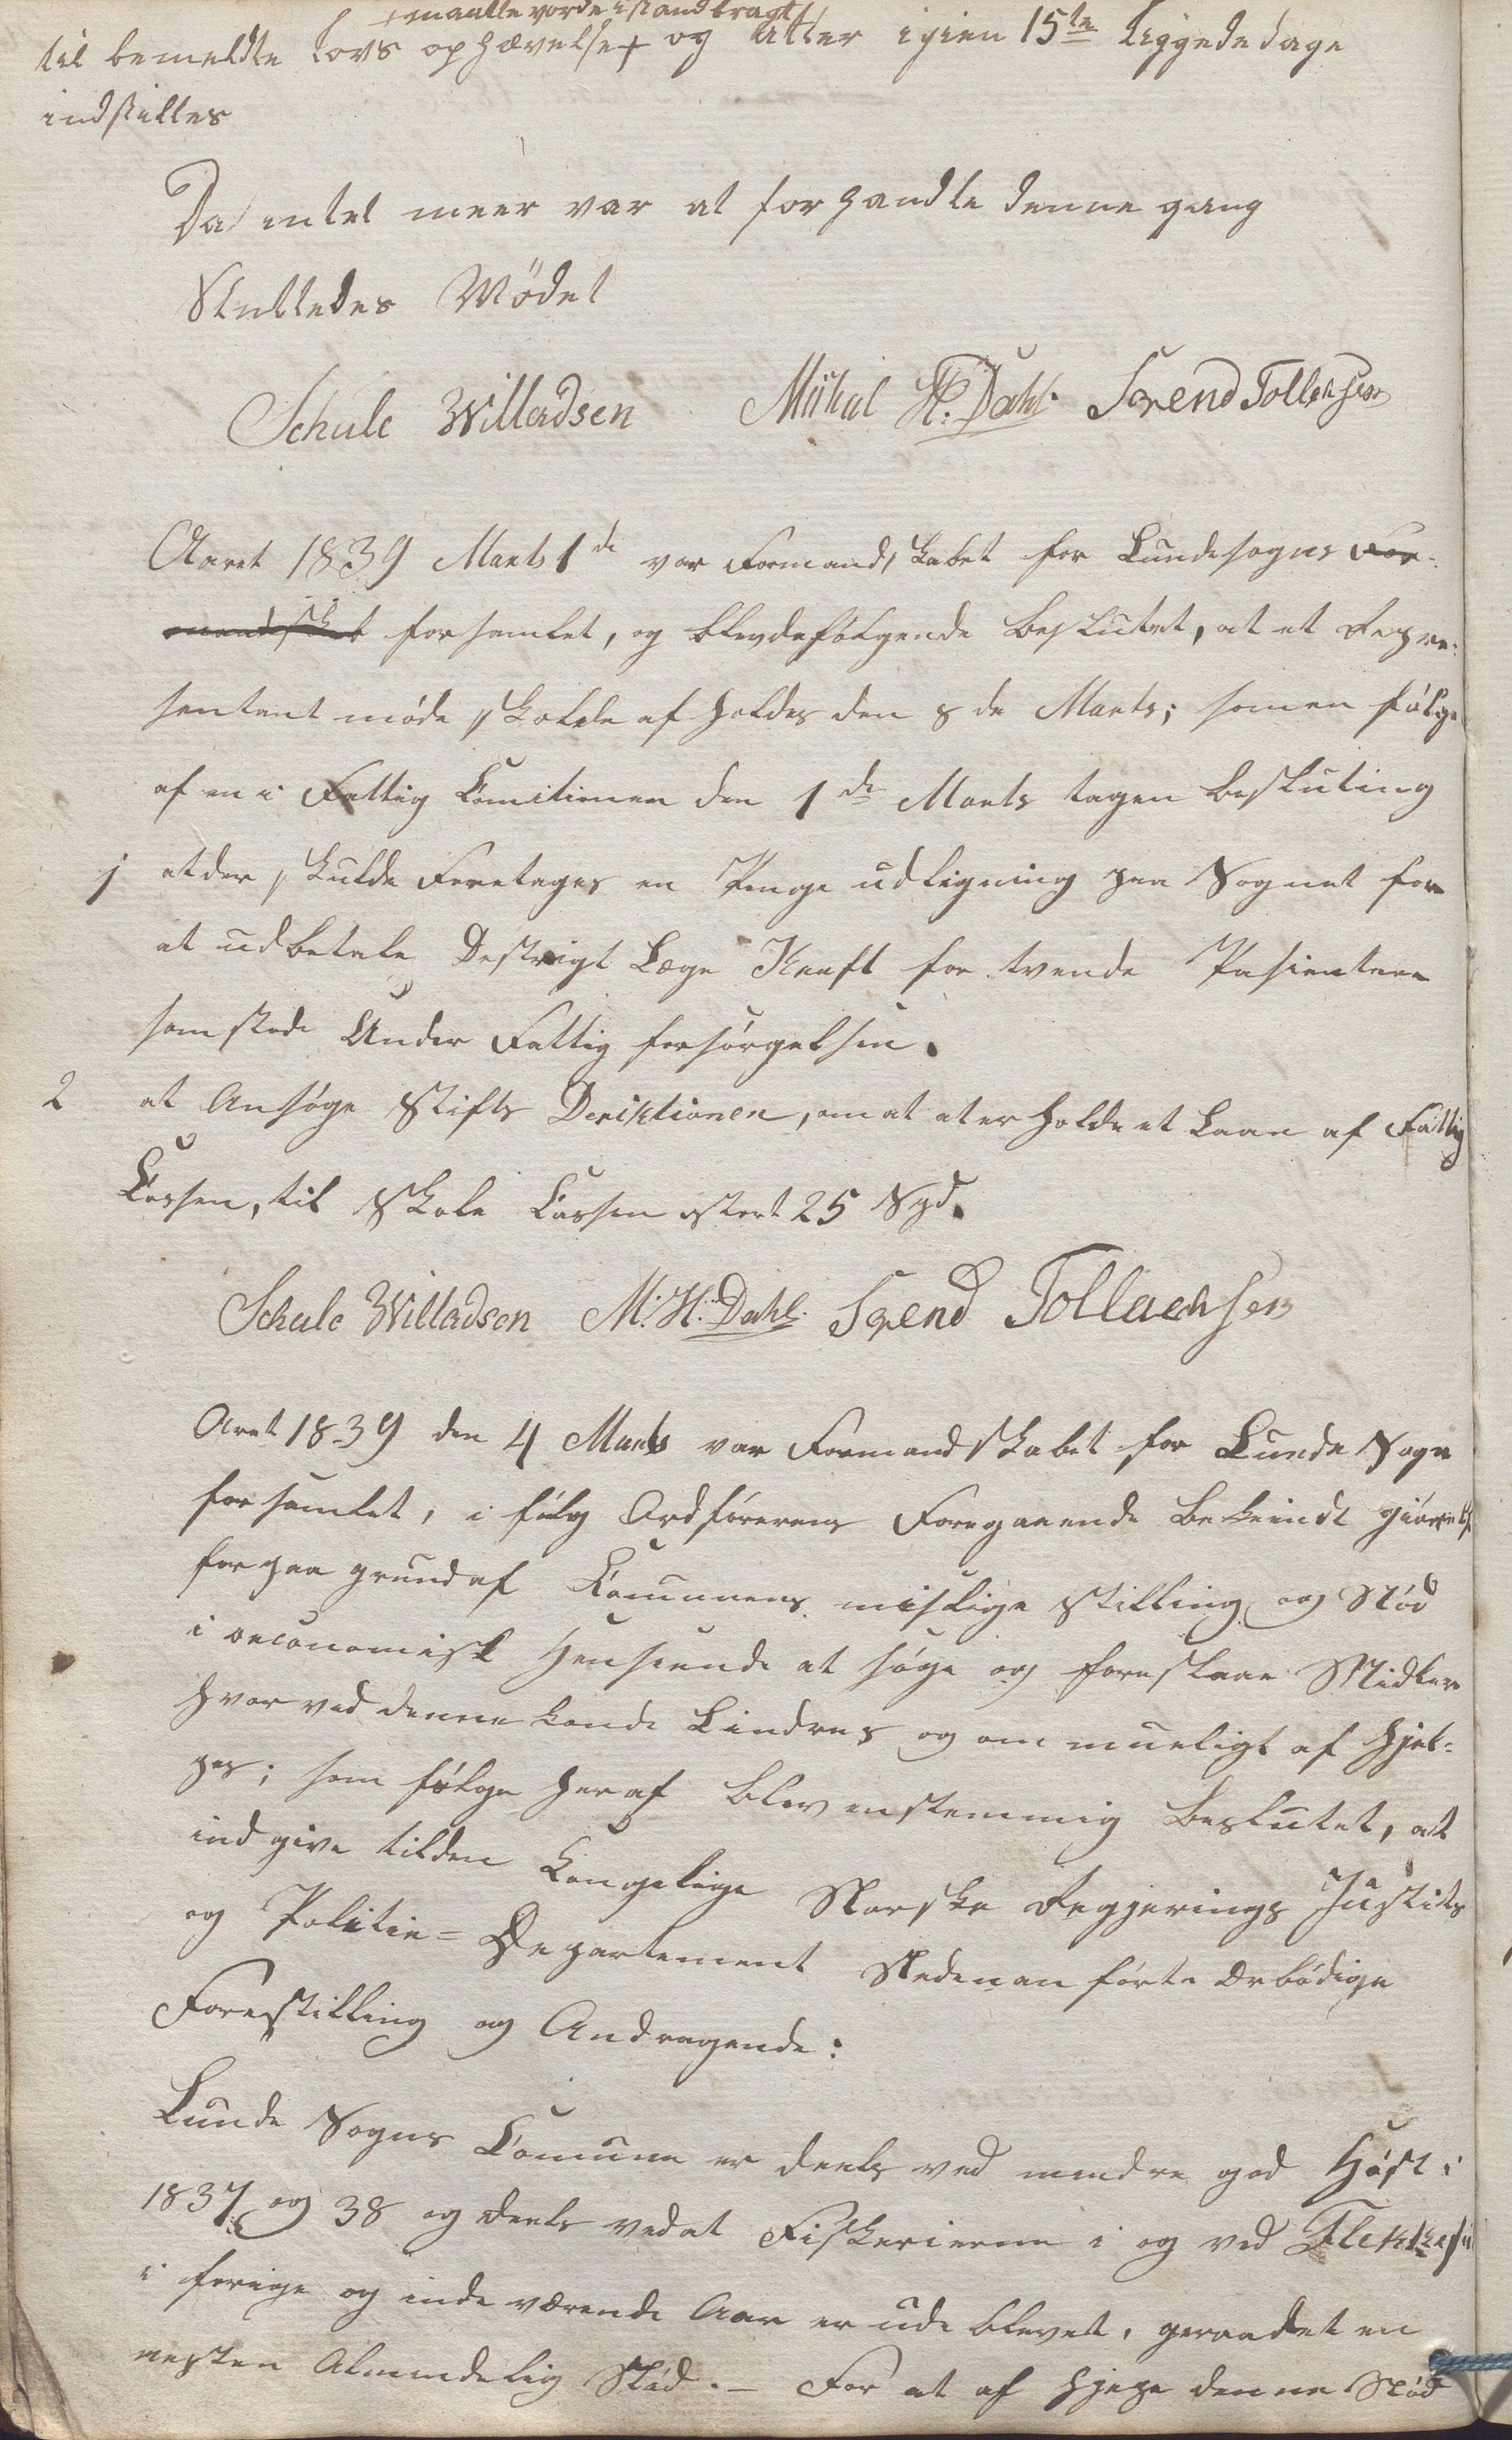 + maatte vorde istandbragt +
til bemeldte Lovs ophævelse + og atter igien 15te Liggedage
indstilles
Da intet meer var at forhandle denne gang
Sluttedes Mödet
Schule Willadsen Mikal H. Dahl. Svend Tollachsen
Aaret 1839 Marts 1de var Formandskabet for Lundesogns For-
mandskab forsamlet, og blev defølgende Beslutet, at et Repre-
sentant møde skulde afholdes den 8de Marts; som en følge
af en i Fattig Comitionen den 1de Marts tagen beslutning
1 at der skulde Foretages en Penge udligning paa Sognet for
at udbetale Destrigt Læge Kraft for tvende Pasientere
som stode Under Fattig forsørgelsen.
2 at Ansøge Stifts Deriktionen, om at at erholde et Laan af Fattig
Cassen, til Skole Cassen stort 25 Spd.
Schule Willadsen M. H. Dahl. Svend Tollachsen
Aret 1839 den 4 Marts var Formandskabet for Lunde Sogn
forsamlet, i følg Ordførerens Foregaaende Bekiendt giørelse
for paa grund af Comunens mislige Stilling og Nød
i oeconomisk Henseende at søge og foreslaae Midler
hvorved denne kunde Lindres og om mueligt af hjel-
pes; som følge heraf blev enstemmig Beslutet, at
indgive til den Kongelige Norske Regjerings Justits
og Politie=Departement Nedenanførte ærbødige
Forestilling og Andragende:
Lunde Sogns Comune er deels ved mindre god Høst i
1837 og 38 og deels ved at Fiskerierne i og ved Flekkefi
i forige og inde værende Aar er ude blevet, geraadet en
nesten Almindelig Nød. – For at af hjepe denne Nød